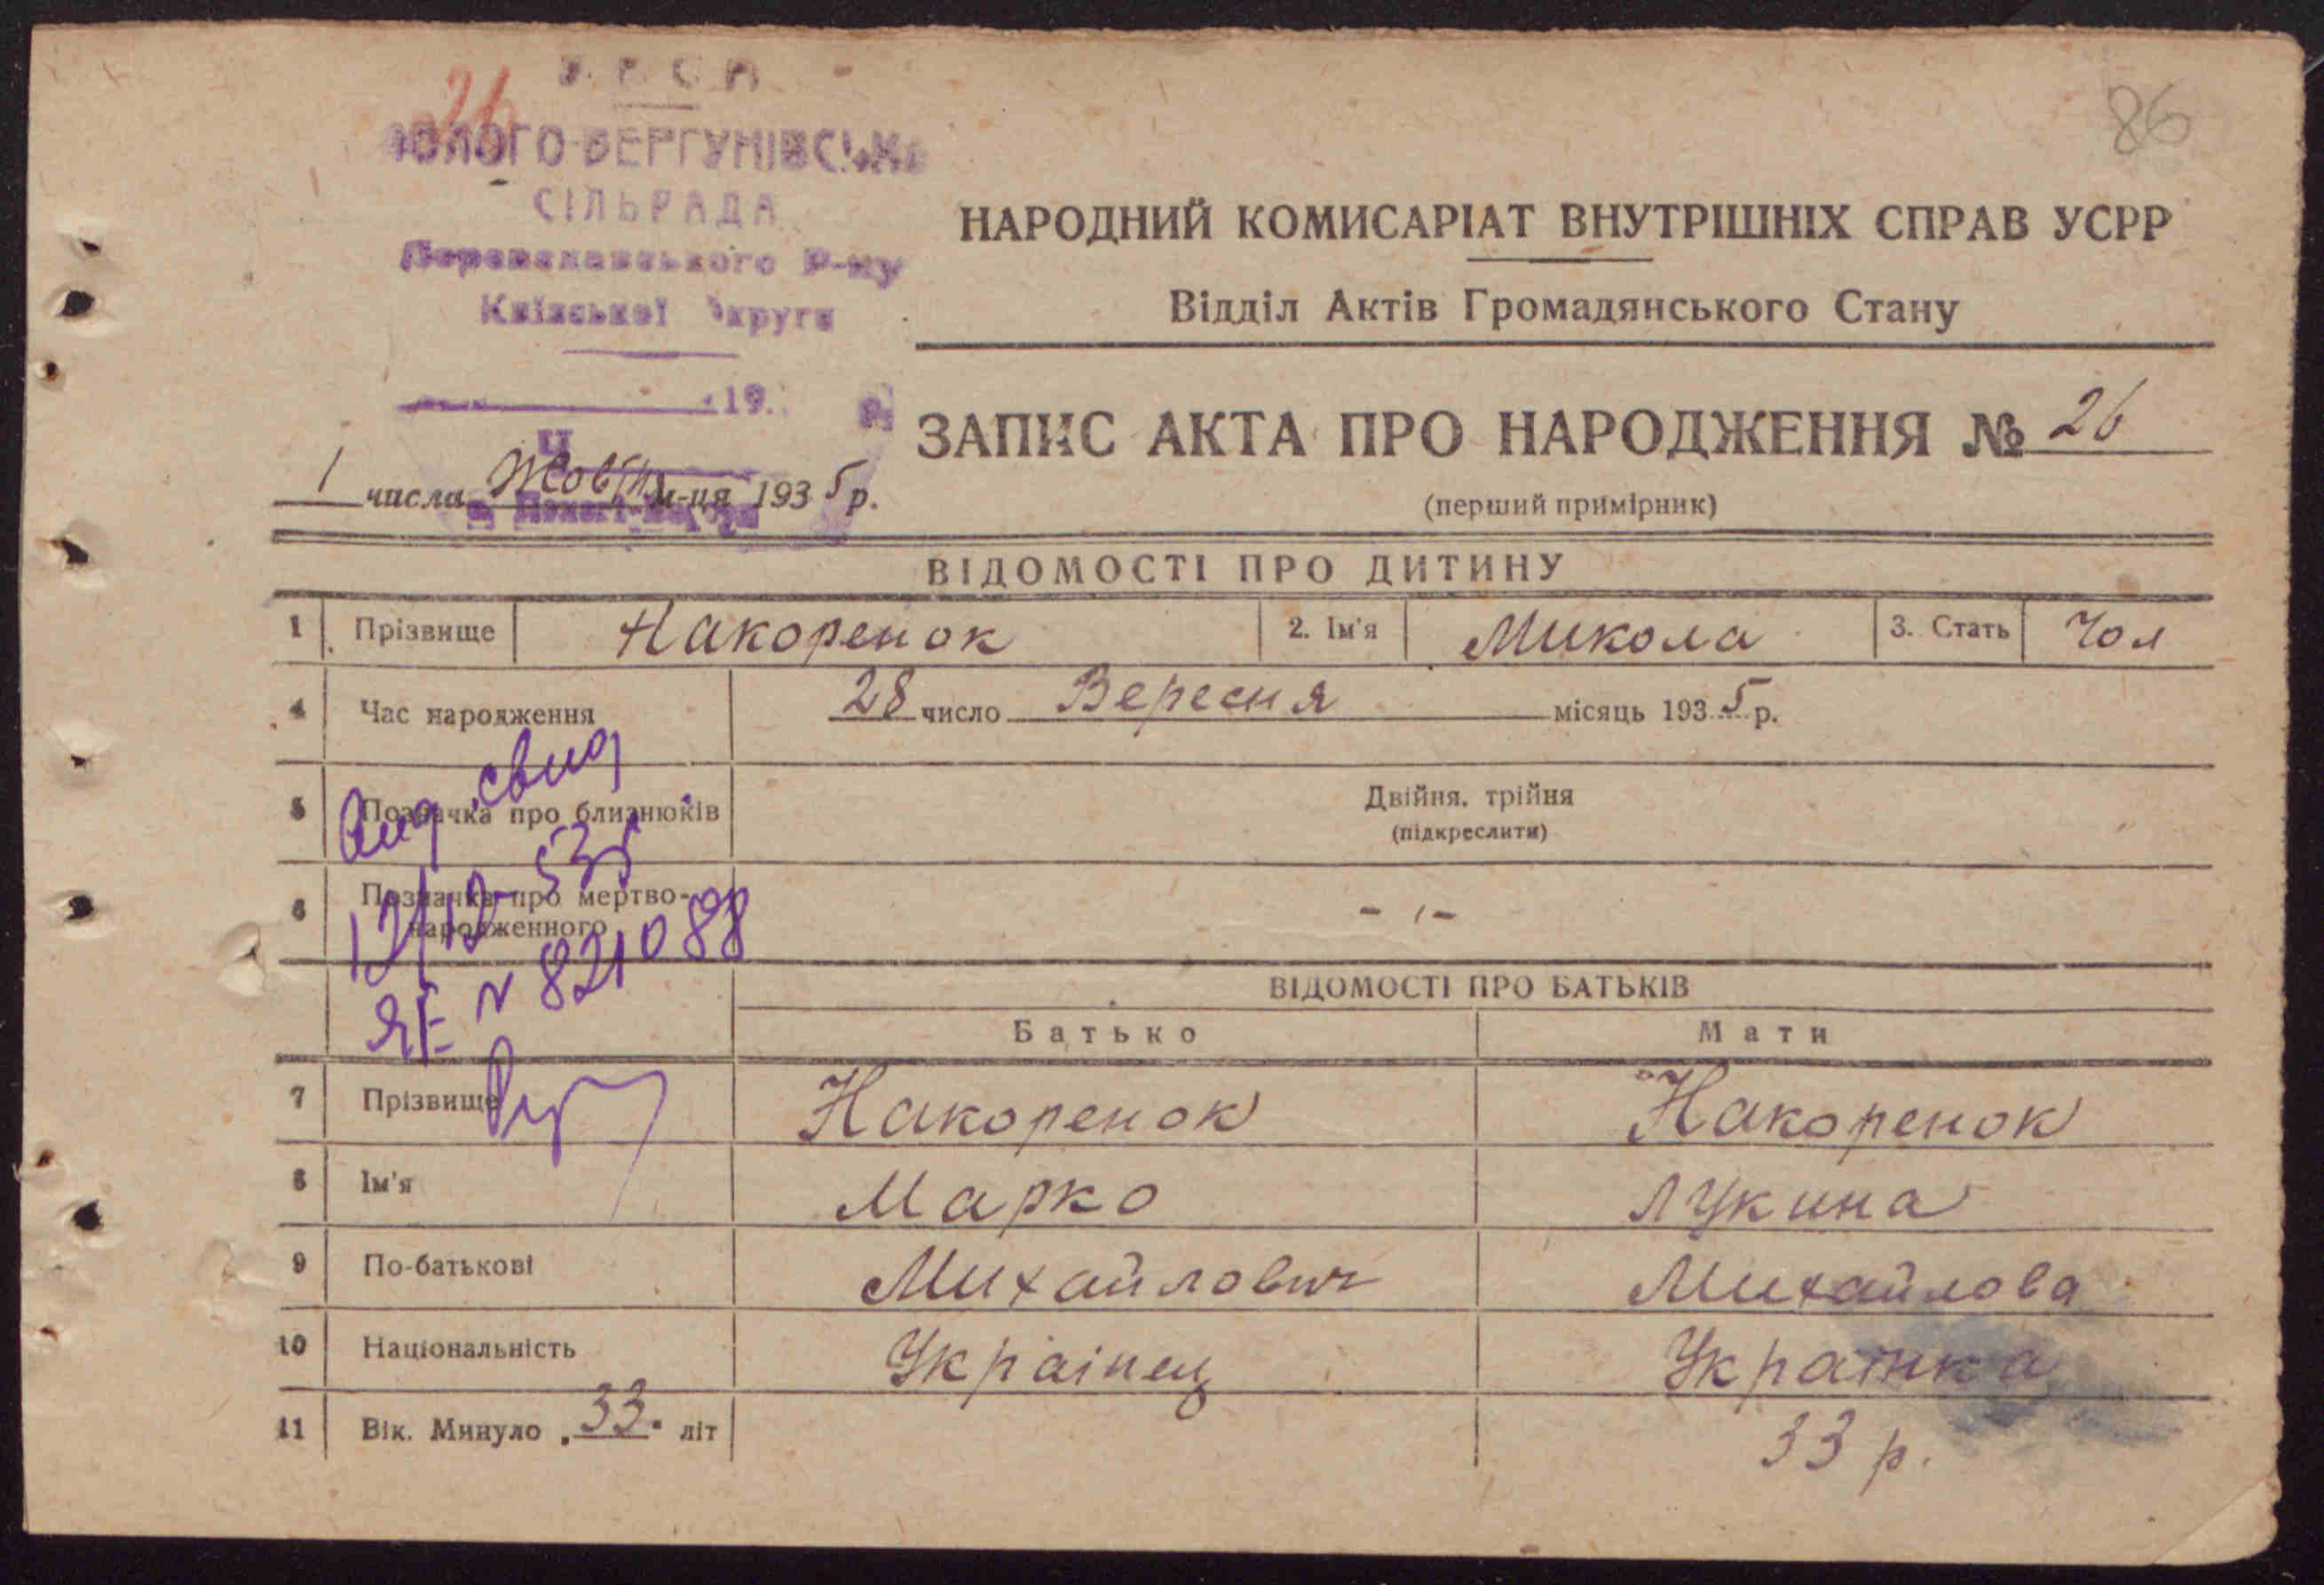 26
УРСР
ПОЛОГО-ВЕРГУНІВСЬКА
СІЛЬРАДА
Р-ну
Київської Округи
19
Ч.
86
НАРОДНИЙ КОМИСАРІАТ ВНУТРІШНІХ СПРАВ УСРР
Відділ Актів Громадянського Стану
ЗАПИС АКТА ПРО НАРОДЖЕННЯ № 26
(перший примірник)
1 числа Жовтн м-ця 1935 р.
ВІДОМОСТІ ПРО ДИТИНУ
1 Прізвище Накоренок 2. Ім'я Микола 3. Стать Чол
4 Час народження 28 число Вересня місяць 1935 р.
5 Позначка про близнюків Двійня, трійня
(підкреслити)
6 Позначка про мертво-
народженного - ı -
свид
12/12-53г
ЯЕ N 821088
ВІДОМОСТІ ПРО БАТЬКІВ
Батько Мати
7 Прізвище Накоренок Накоренок
8 Ім'я Марко Лукина
9 По-батькові Михайлович Михайлова
10 Національність Українец Українка
11 Вік. Минуло 33 літ 33 р.